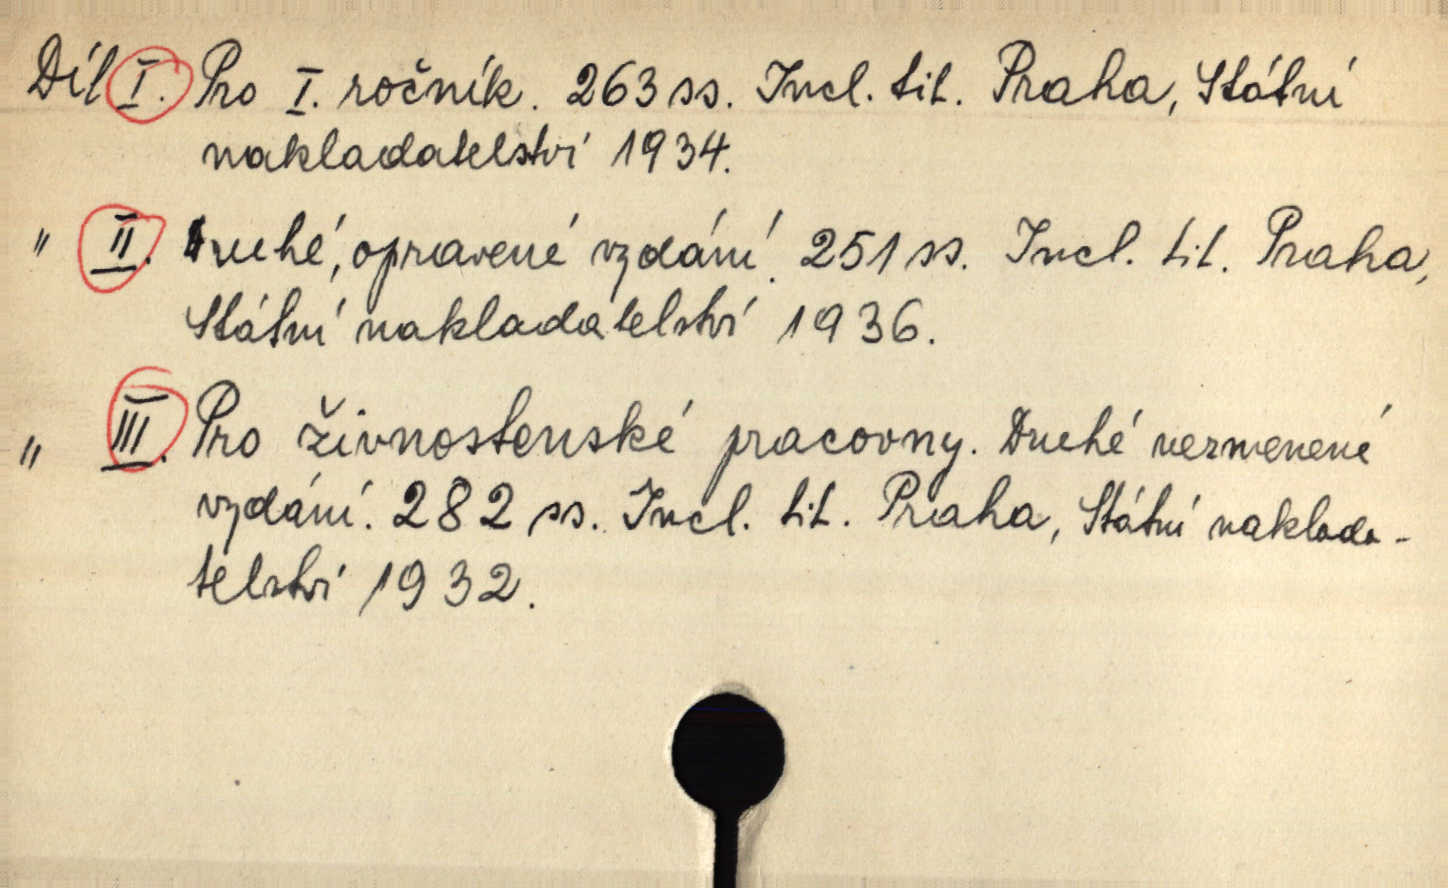 Díl I. Pro I. ročník. 263 ss. Incl. tit. Praha, Státní
nakladatelství 1934.
" II. Druhé, opravené vydání. 251 ss. Incl. tit. Praha,
Státní nakladatelství 1936.
" III. Pro živnostenské pracovny. Druhé nezmenené
vydání. 282 ss. Incl. tit. Praha, Státní naklada-
telství 1932.